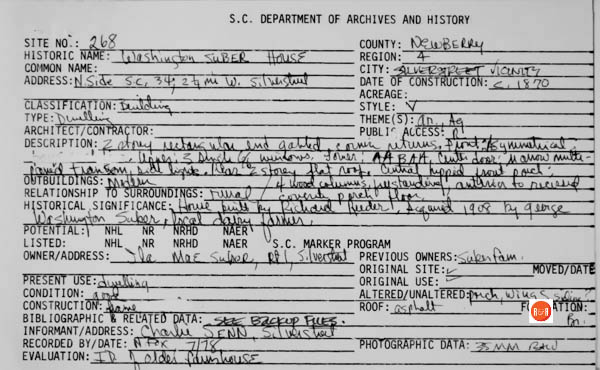 S.C. DEPARTMENT OF ARCHIVES AND HISTORY
SITE NO.: 268 COUNTY: NEWBERRY
HISTORIC NAME: Washington SUBER HOUSE REGION: 4
COMMON NAME: CITY: SILVERSTREET VICINITY
ADDRESS: N. Side S.C. 34, 2 1/4 mi W. Silverstreet DATE OF CONSTRUCTION: c. 1870
ACREAGE:
CLASSIFICATION: Building STYLE: V
TYPE: Dwelling THEME(S): Ar, Ag
ARCHITECT/CONTRACTOR: PUBLIC ACCESS:
DESCRIPTION: 2 story rectangular end gabled, cornice returns, Front: Asymmetrical,
Upper: 3 windows, lower: AABAA, Central door: narrow multi-
paned transom, side lights, Rear 2 storey flat roof, Central hipped front porch:
OUTBUILDINGS: Modern 4 wood columns, freestanding, anterior to recessed
RELATIONSHIP TO SURROUNDINGS: rural covered porch floor
HISTORICAL SIGNIFICANCE: House built by Richard Reeder, acquired 1908 by George
Washington Suber, local dairy farmer.
POTENTIAL: NHL NR NRHD NAER
LISTED: NHL NR NRHD NAER S.C. MARKER PROGRAM
OWNER/ADDRESS: Ila Mae Suber, Rt 1, Silverstreet PREVIOUS OWNERS: Suber fam.
ORIGINAL SITE: ✓ MOVED/DATE
PRESENT USE: dwelling ORIGINAL USE: ✓
CONDITION: good ALTERED/UNALTERED: porch, wings
CONSTRUCTION: frame ROOF: asphalt FOUNDATION:
BIBLIOGRAPHIC & RELATED DATA: SEE BACKUP FILES.
INFORMANT/ADDRESS: Charlie SENN, Silverstreet
RECORDED BY/DATE: N Fox 7/78 PHOTOGRAPHIC DATA: 35MM B&W
EVALUATION: ID of older farmhouse
R&R